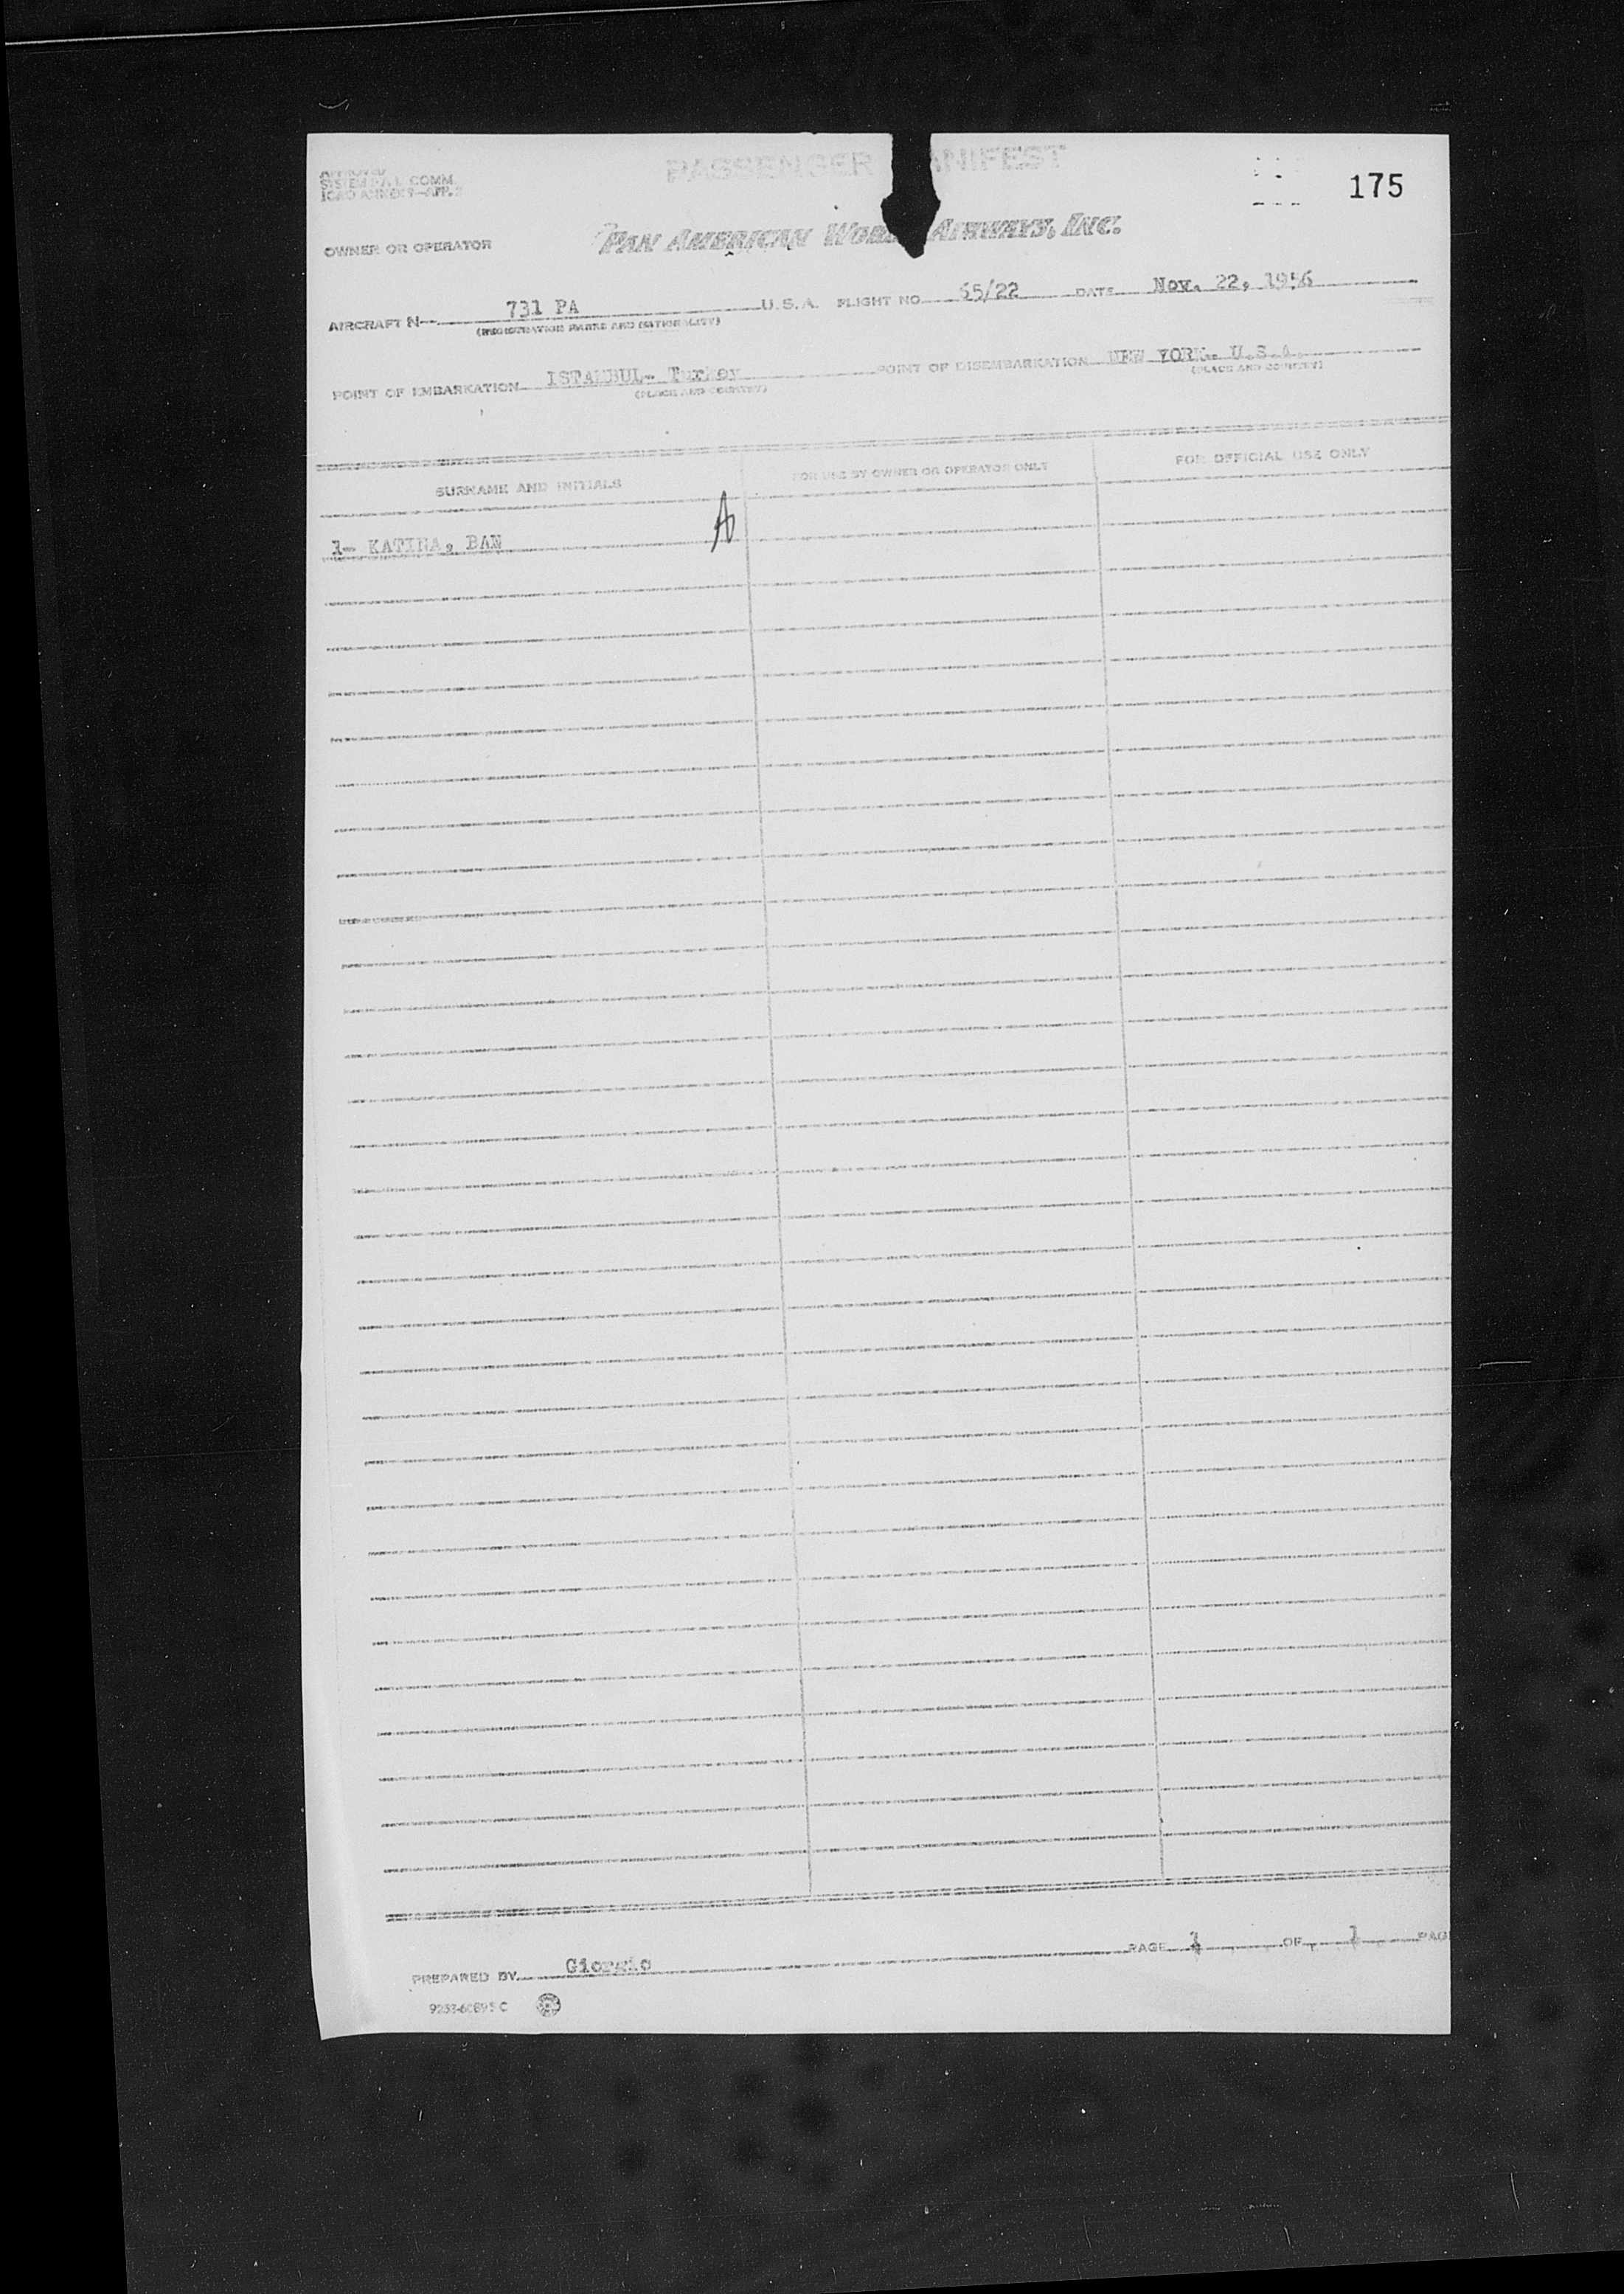 PASSENGER MANIFEST
175
APPROVED
SYSTEM F.A.L. COMM.
ICAO ANNEX 9-APP.
OWNER OR OPERATOR PAN AMERICAN WORLD AIRWAYS, INC.
AIRCRAFT N- 731 PA U.S.A. FLIGHT NO. 65/22 DATE Nov. 22, 1956
(REGISTRATION MARKS AND NATIONALITY)
POINT OF EMBARKATION ISTANBUL- Turkey POINT OF DISEMBARKATION NEW YORK- U.S.A.
(PLACE AND COUNTRY) (PLACE AND COUNTRY)
SURNAME AND INITIALS FOR USE BY OWNER OR OPERATOR ONLY FOR OFFICIAL USE ONLY
1- KATINA, BAN A
PREPARED BY Giorgio PAGE 1 OF 1 PAG